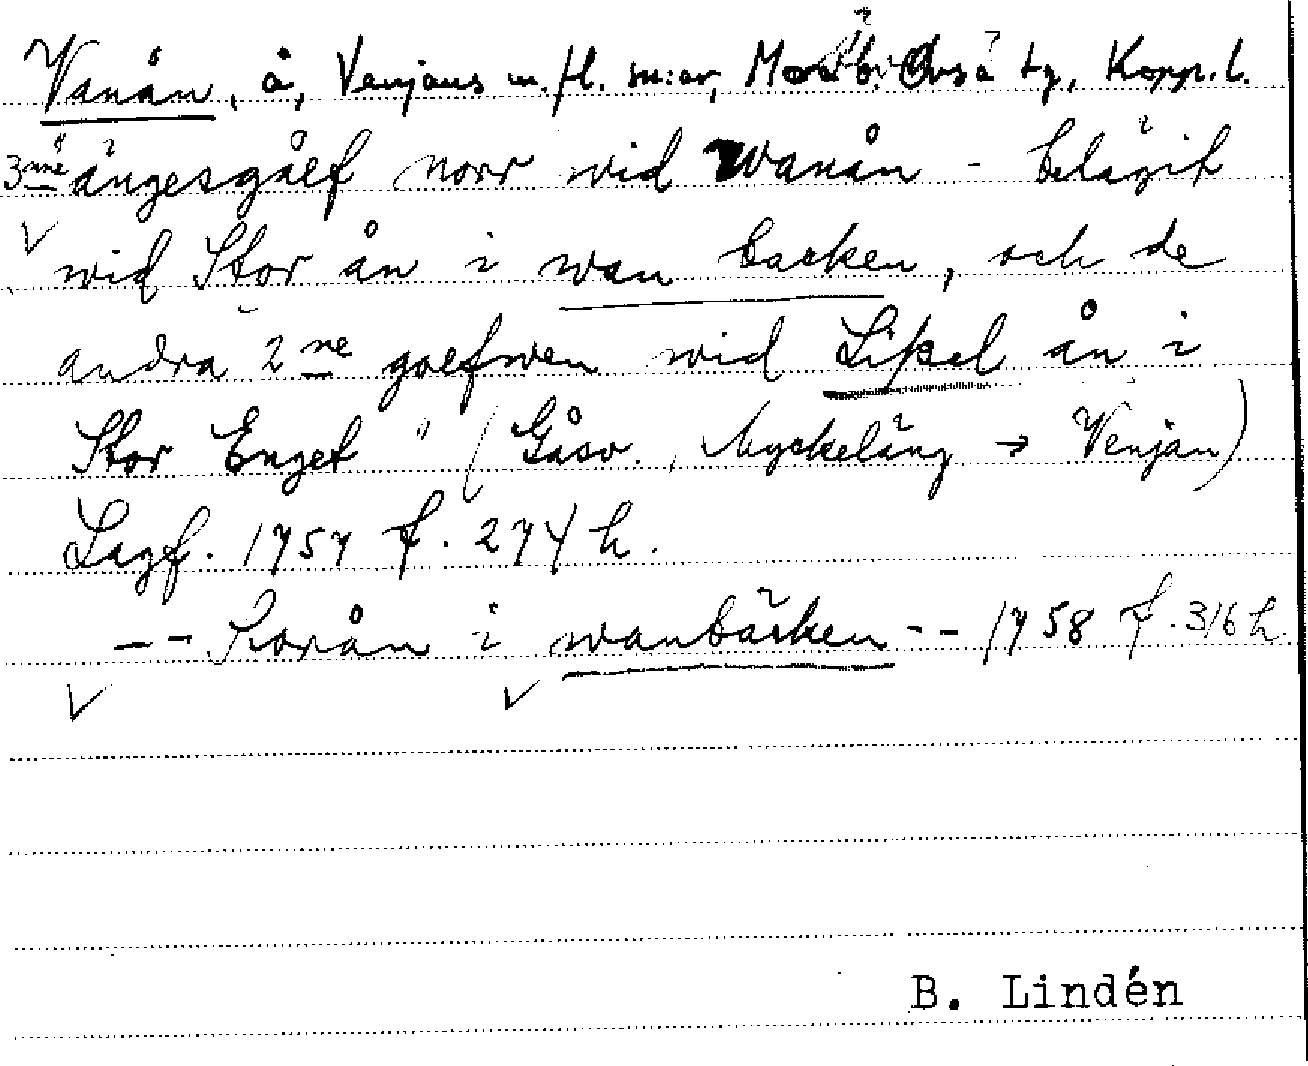 Vanån, å, Venjans m.fl. sn:ar, Mora o. Orsa tg, Kopp. l.
3ne ängesgålf norr wid Wanån - belägit
wid Stor ån i wan backen, och de
andra 2ne golfwen wid Lissel ån i
Stor Enget" (Gåsv., Myckeläng → Venjan)
Lagf. 1757 f. 274 h.
-- Storån i wanbäcken -- 1758 f. 316 h.
B. Lindén